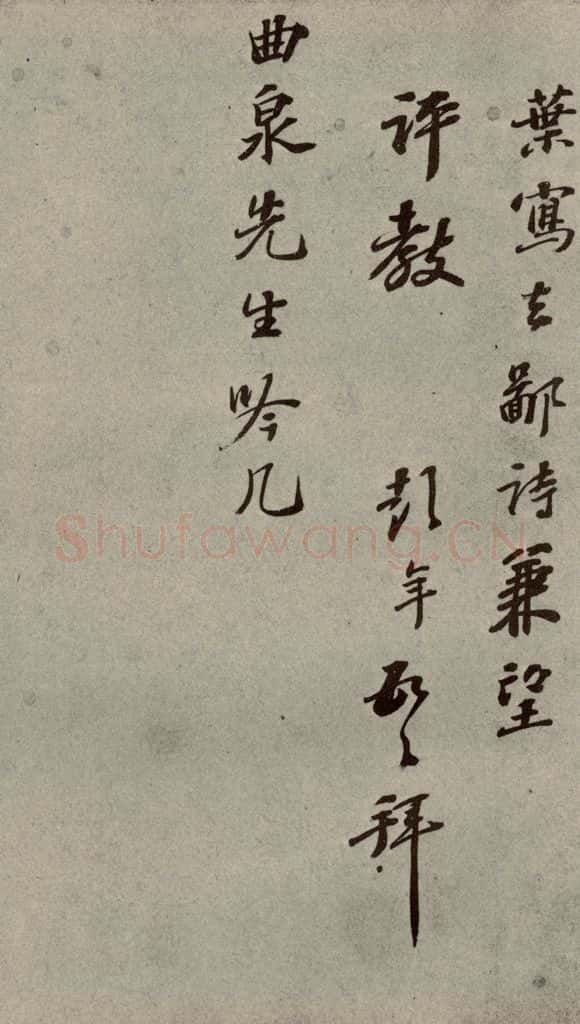 葉寫去鄙詩兼望
評教 彭年頓頓拜
曲泉先生吟几
Shufawang.CN